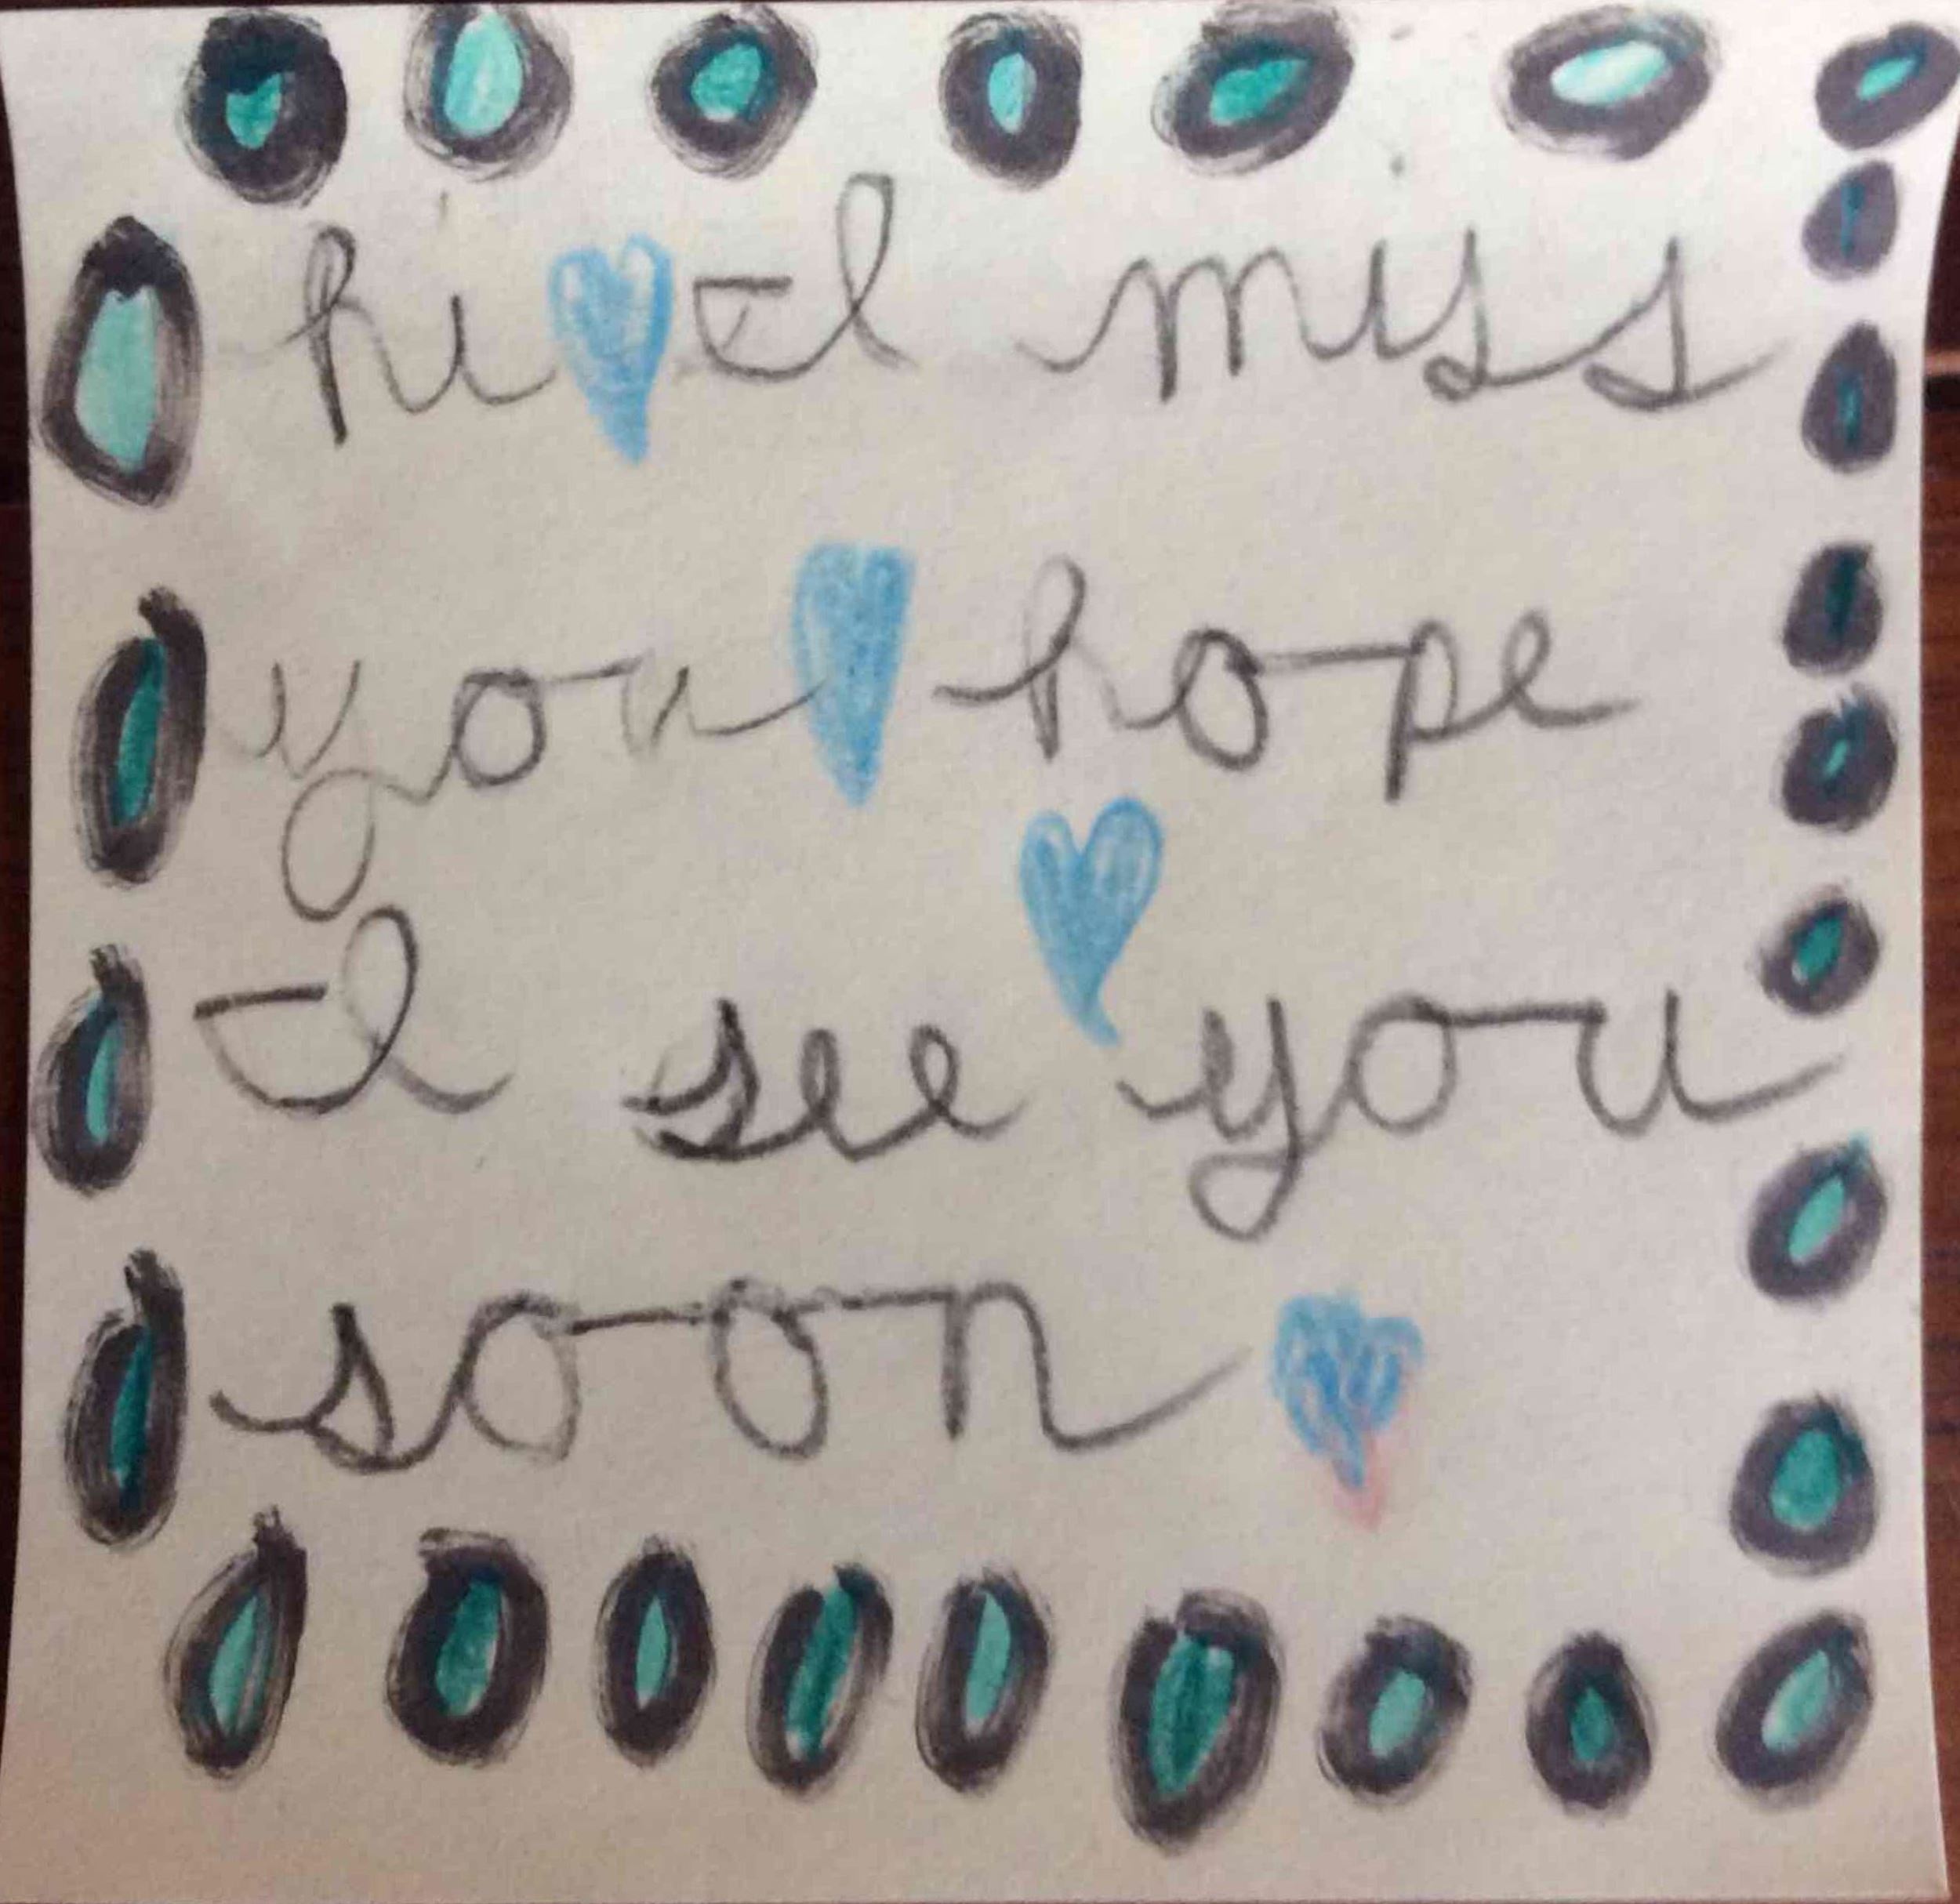 hi I miss
you hope
I see you
soon